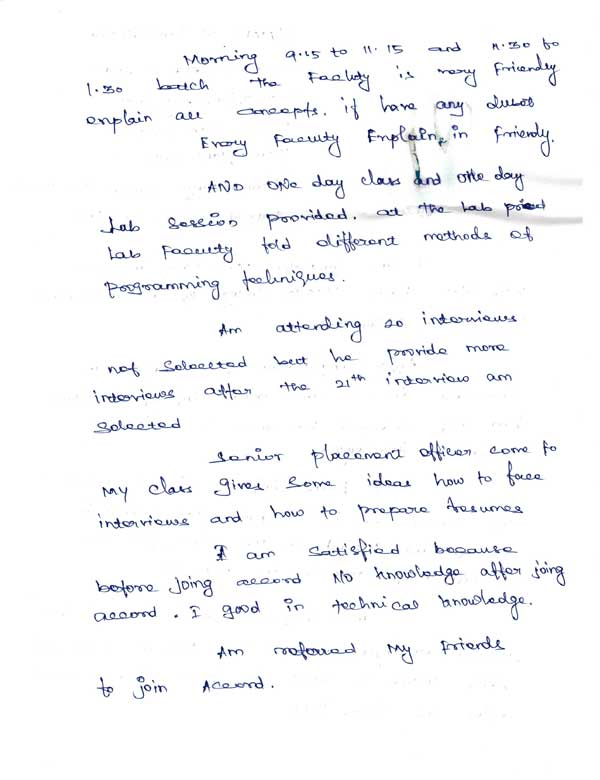 Morning 9.15 to 11.15 and 11.30 to
1.30 batch the Faculty is very Friendly
explain all concepts. if have any dubots
Every Faculty Explain, in Friendy.
AND ONE day class and one day
Lab Session poovided. at the Lab preod
Lab Faculty told different methods of
Programming techniques.
Am attending 20 interviews
not Selected but he provide more
interviews after the 21th interview am
Selected
Senior placement officer come to
My class gives Some ideas how to face
interviews and how to prepare resumes
I am Satisfied because
before joing accord No knowledge after joing
accord. I good in technical knowledge.
Am referred My Friends
to join Accord.